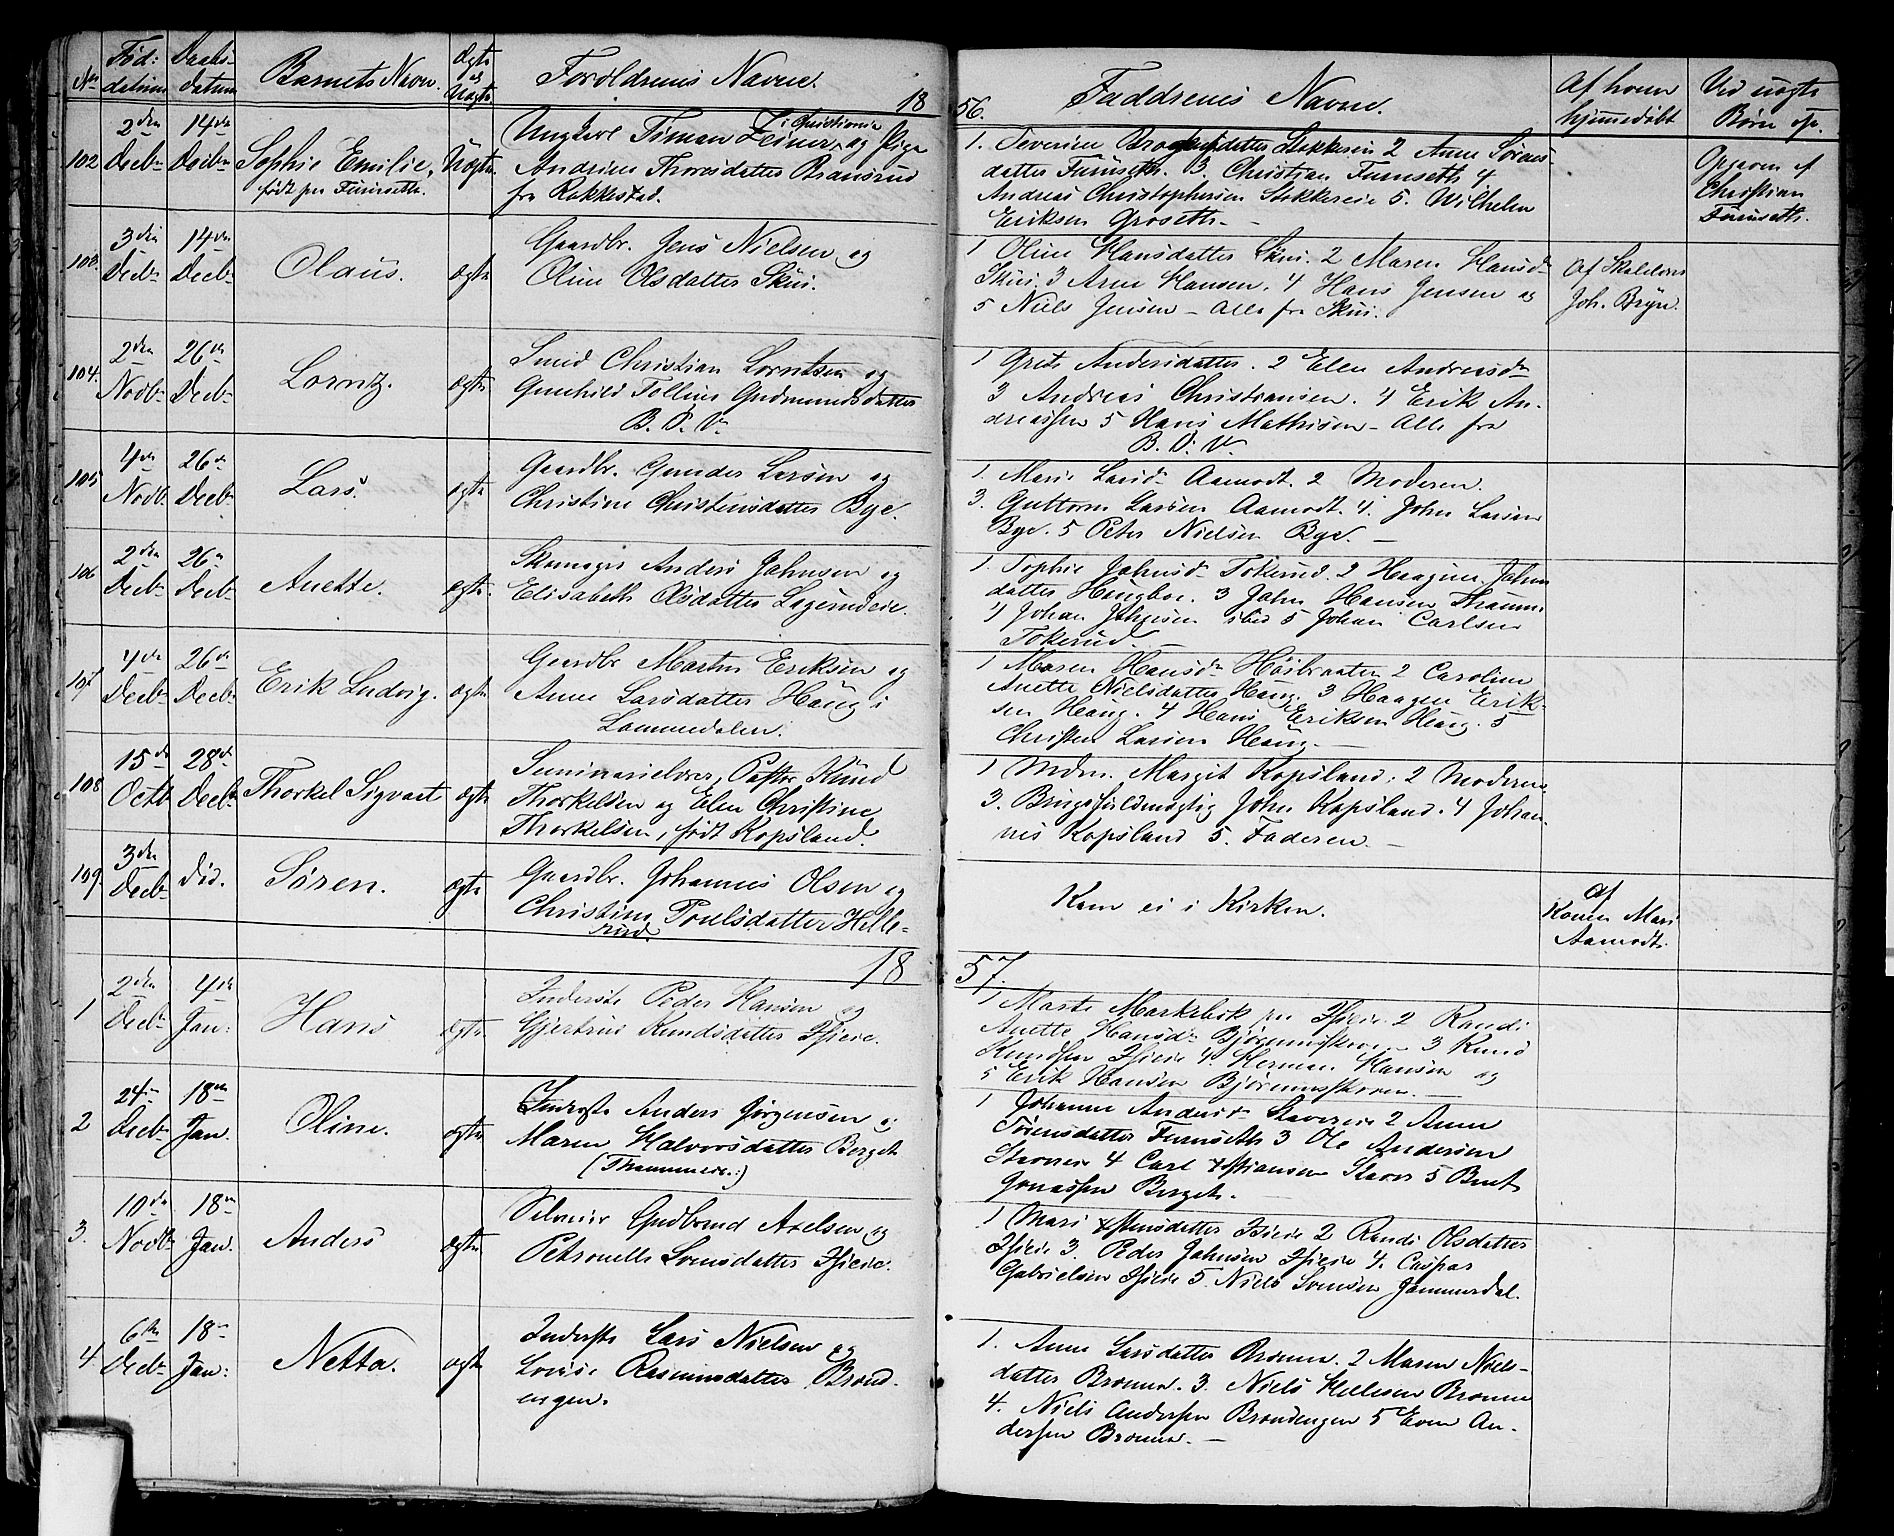 No Fød: datum Daabs- datum Barnets Navn. Ægte og Uægte Forældrenes Navne. 18
56. Faddrenes Navne. Af hvem hjemmedøbt Ved uægte Børn op.
102 2den Decbr 14de Decbr Sophie Emilie, Uægte Ungkarl Timan Zeiner, i Christiania og Pige
født paa Furuseth. Andrine Thorsdatter Bransrud
fra Rakkestad.
1. Severine datter Stokkereie 2 Anne Sørens-
datter Furuseth. 3. Christian Furuseth 4
Andreas Christophersen Stokkereie 5. Wilhelm
Eriksen Groseth. -
Opgiven af
Christian
Furuseth.
103. 3die Decbr 14de Decbr Olaus. ægte Gaardbr. Jens Nielsen og
Oline Olsdatter Skui.
1 Oline Hansdatter Skui. 2 Maren Hansdr
Skui. 3 Arne Hansen. 4 Hans Jensen og
5 Niels Jensen - Alle fra Skui.
Af Skolelærer
Joh. Bryn.
104. 2den Novbr 26de Decbr Lorntz. ægte Smed Christian Lorntsen og
Gunhild Tolline Gudmundsdatter
B. P. V.
1 Grete Andersdatter. 2 Elen Andreasdr
3 Andreas Christiansen. 4 Erik An-
dreassen 5 Hans Mathisen - Alle fra
B. P. V.
105 4de Novb. 26de Decbr Lars. ægte Gaardbr. Gunder Larsen og
Christine Christensdatter Bye.
1. Marie Larsdr Aamodt. 2 Moderen.
3. Guttorm Larsen Aamodt. 4. John Larsen
Bye. 5 Peter Nielsen Bye. -
106 2den Decbr 26de Decbr Anette. ægte. Skomager Anders Johnsen og
Elisabeth Olsdatter
1. Sophie Johnsdr Tokerud. 2 Haagine Johns
datter Haugboe. 3 John Hansen
4 Johan Johnsen ibid 5 Johan Carlsen
Tokerud. -
107 4de Decbr 26de Decbr Erik Ludvig. ægte Gaardbr Martin Eriksen og
Anne Larsdatter Haug i
Lommedalen.
1 Maren Hansdr Høibraaten 2 Caroline
Anette Nielsdatter Haug. 3 Haagen Erik-
sen Haug. 4 Hans Eriksen Haug. 5
Christen Larsen Haug. -
108 15de Octb 28de Decbr Thorkel Sigvart ægte Seminarielærer, Pastor Knud
Thorkelsen og Elen Christine
Thorkelsen, født Kopsland.
1 Mdm. Margit Kopsland. 2 Moderen
3. John Kopsland. 4 Johan-
nes Kopsland 5. Faderen. -
109. 3die Decbr Død. Søren. ægte Gaardbr. Johannes Olsen og
Christine Poulsdatter Hille-
rud.
Kom ei i Kirken.
af
Konen Mari
Aamodt.
18
57.
1 2den Decbr 4de Jan: Hans ægte Inderste Peder Hansen og
Gjertrud Knudsdatter Isieie.
1 Marte Marksbek paa Isieie. 2 Randi
Anette Hansdr 3 Knud
Knudsen Isieie 4. Herman Hansen og
5 Erik Hansen
2 24de Decbr 18de Jan. Oline. ægte Inderste Anders Jørgensen og
Maren Halvorsdatter Berget
1 Johanne Andersdr Stavereie 2 Anne
Sørensdatter Furuseth 3 Ole Andersen
4 Carl Xstiansen Staver 5 Bent
Jonassen Berget. -
3. 10de Novbr 18de Jan. Anders ægte Selveier Gudbrand Axelsen og
Petronelle Svensdatter Isieie.
1 Mari Xstensdatter Isieie 2 Randi Olsdatter
Isieie 3. Peder Johnsen Isieie 4. Caspar
Gabrielsen Isieie 5. Niels Svensen Jammerdal.
4 6te Decbr 18de Jan: Netta. ægte Inderste Lars Nielsen og
Lovise Rasmusdatter Brænd-
engen.
1. Anne Larsdatter Brenna. 2 Maren Niels-
datter Brenna. 3. Niels Brenna
4. Niels Andersen Brændengen 5 Even An-
dersen Brenna. -